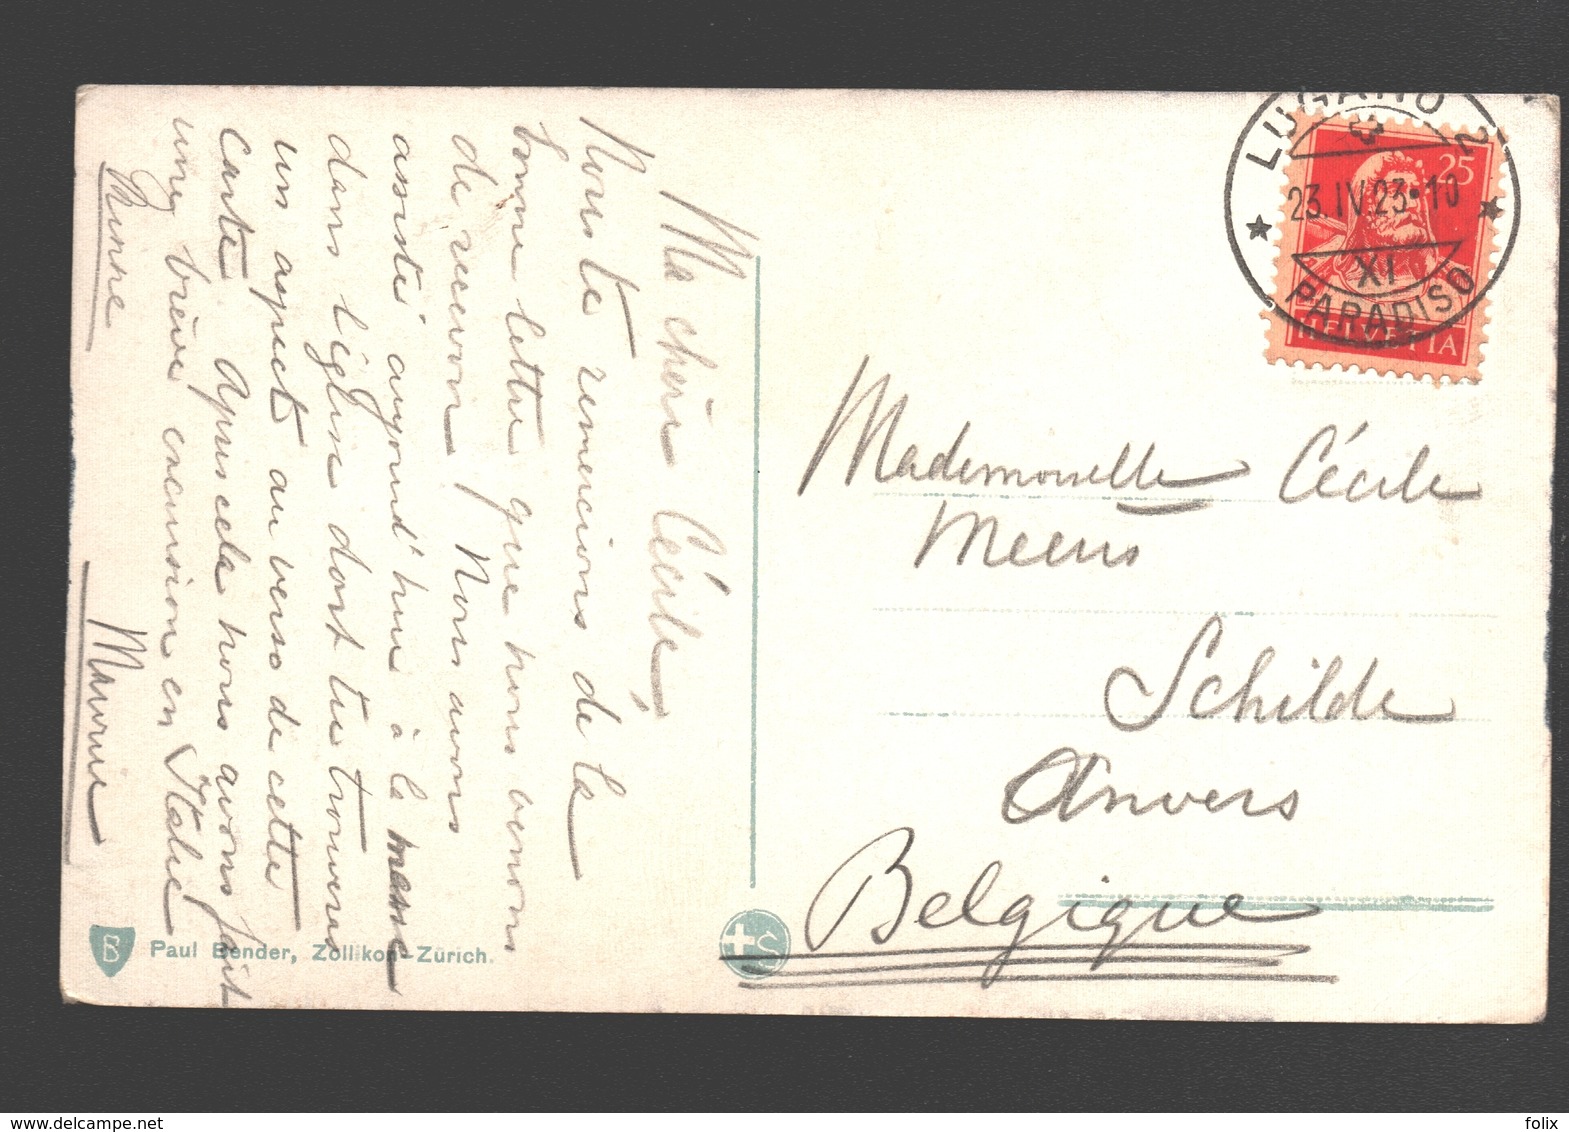 Ma chère Cécile,
Nous te remercions de la
bonne lettre que nous venons
de recevoir. Nous avons
assisté aujourd'hui à la messe
dans l'église dont tu trouveras
un aspect au verso de cette
carte. Après cela nous avons fait
une brève excursion en Italie
Mademoiselle Cécile
Meeus
Schilde
Anvers
Belgique
LUGANO 2
23.IV.23.10
XI
PARADISO
25
HELVETIA
B Paul Bender, Zollikon-Zürich.
felix
delcampe.net